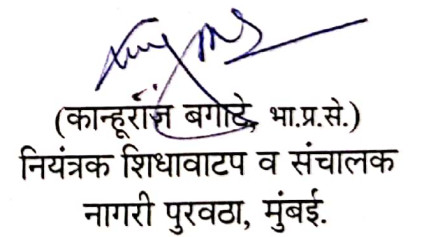 (कान्हूराज बगाटे, भा.प्र.से.)
नियंत्रक शिधावाटप व संचालक
नागरी पुरवठा, मुंबई.